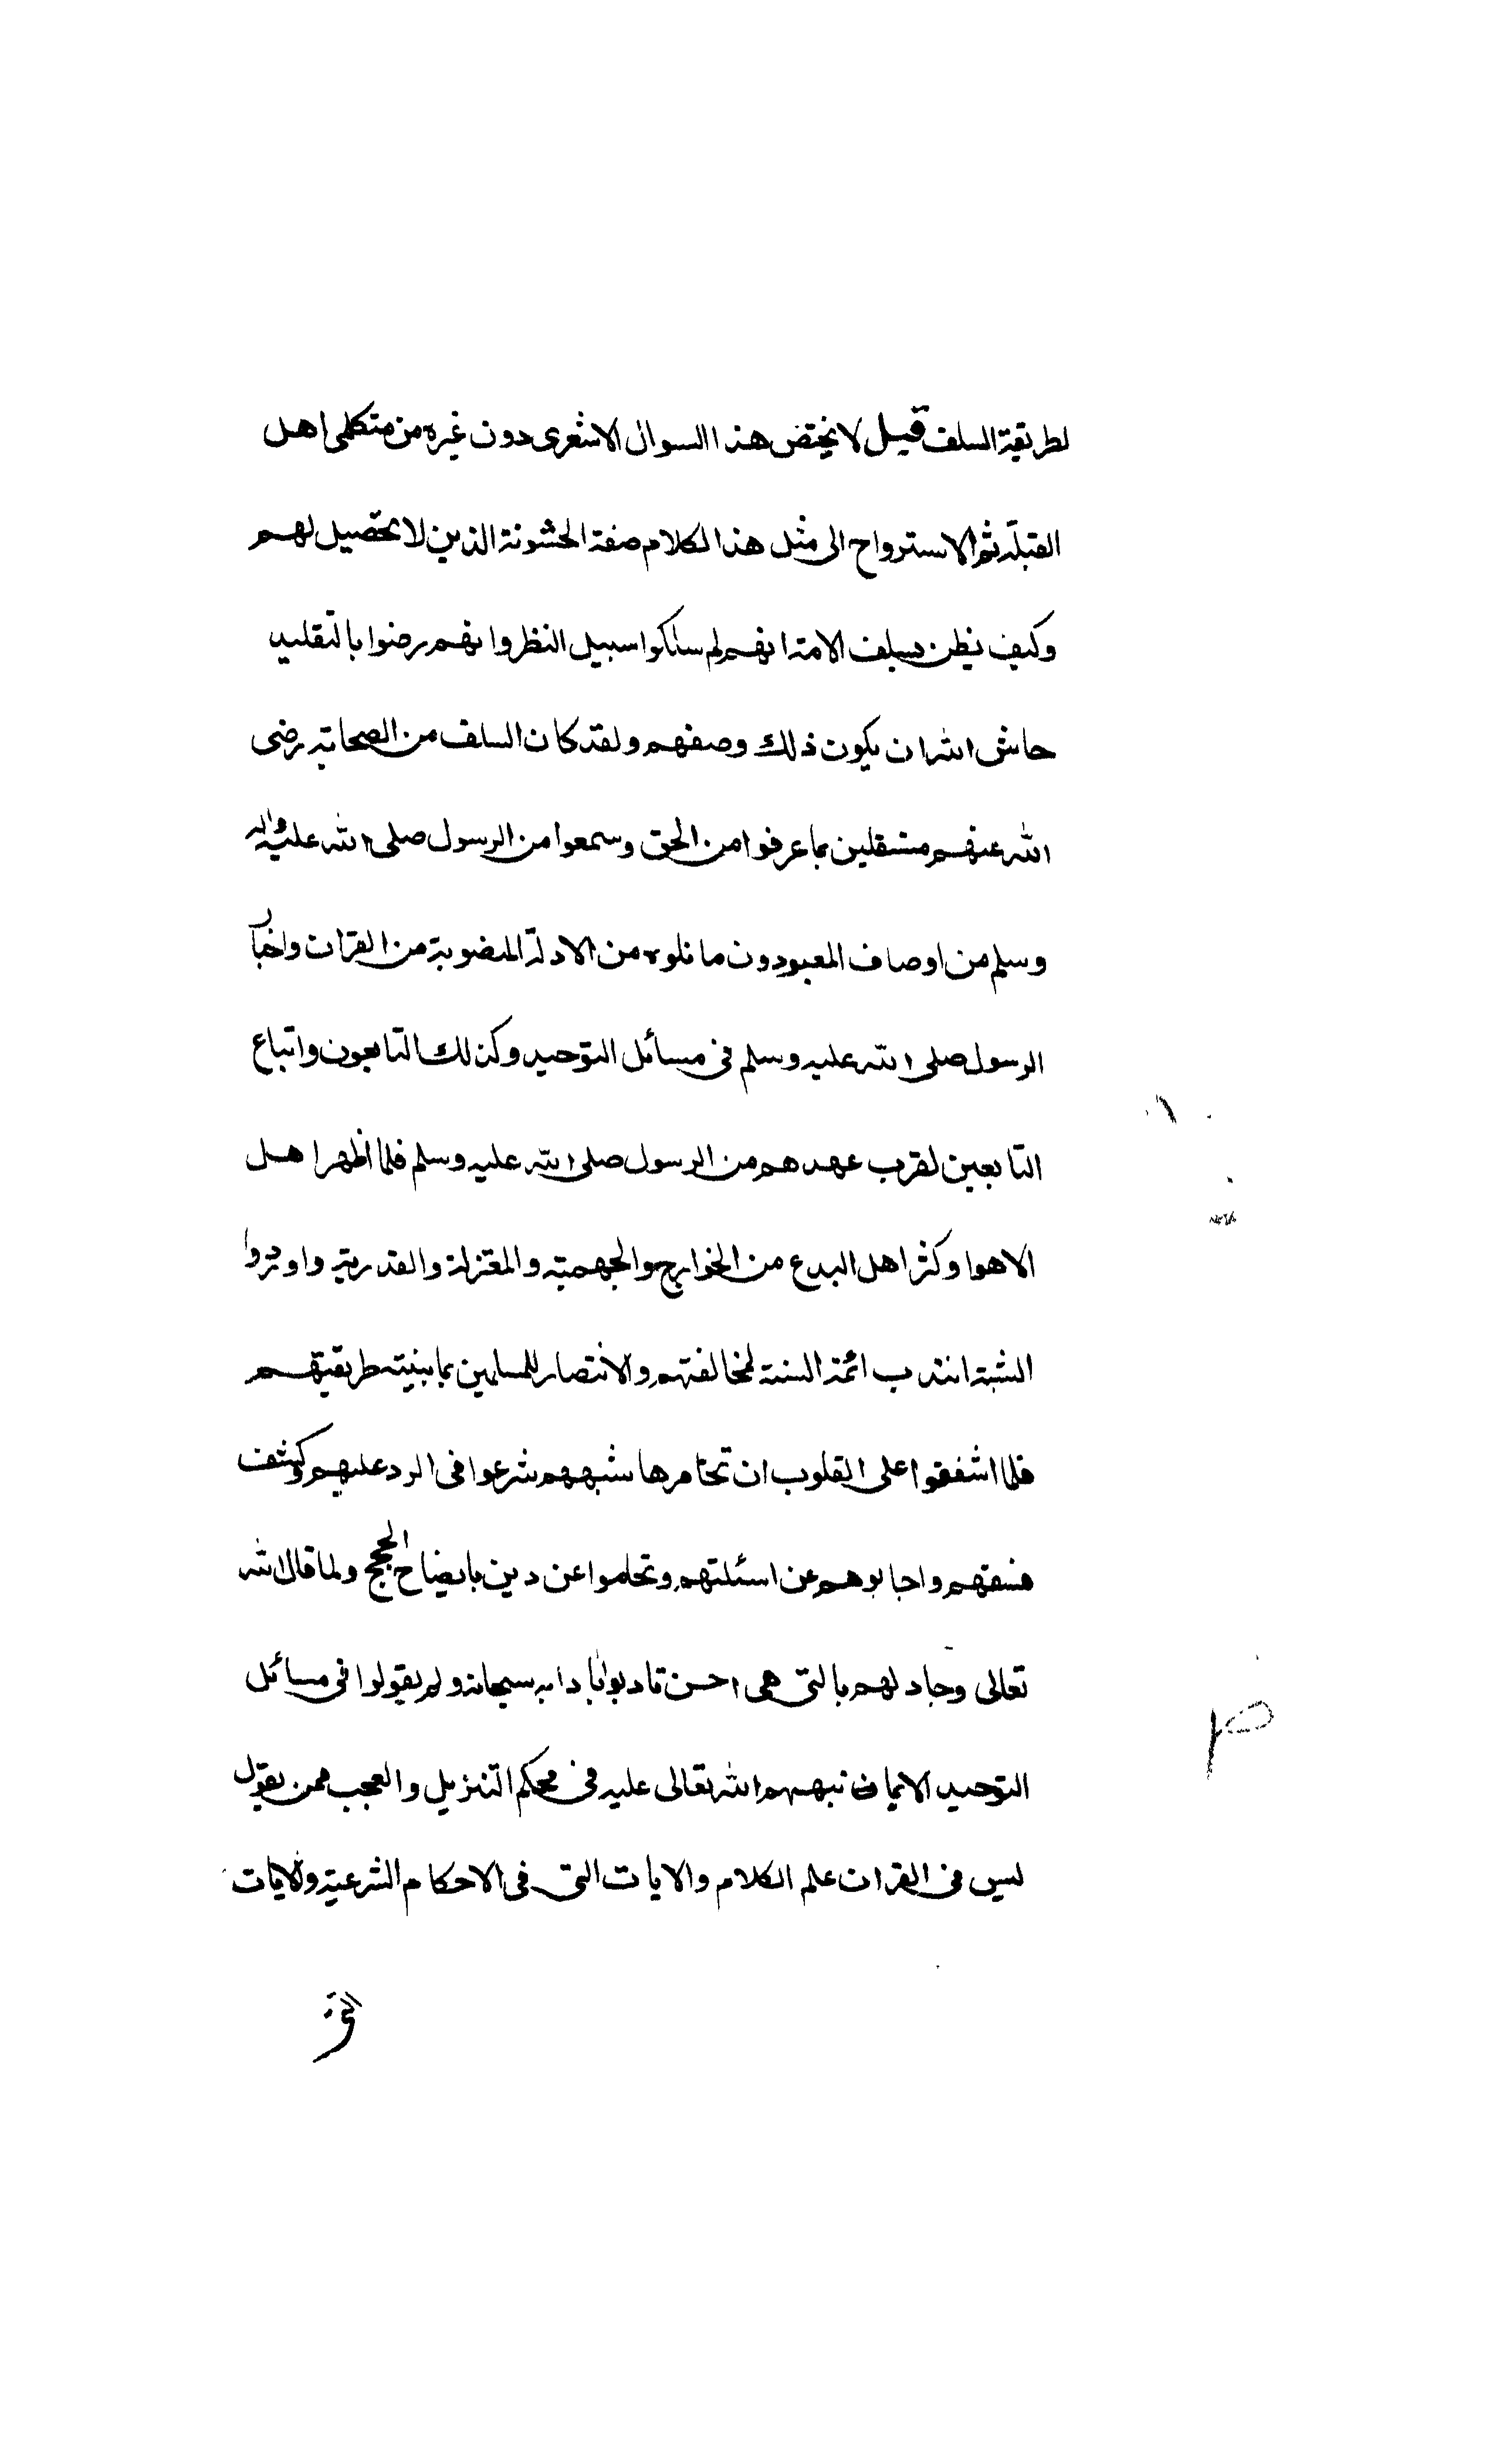 لطريقة السلف قيل لا يختص هذا السوال الاشعرى دون غيره من متكلمى اهل
القبلة ثم الاسترواح الى مثل هذا الكلام صفة الحشونة الذين لا تحصيل لهم
وكيف يظن بسلف الامة انهم لم يسلكوا سبيل النظر وانهم رضوا بالتقليد
حاش الله ان يكون ذلك وصفهم ولقد كان السلف من الصحابة رضى
الله عنهم مستقلين بما عرفوا من الحق وسمعوا من الرسول صلى الله عليه واله
وسلم من اوصاف المعبود ون ما تلوه من الادلة المنصوبة من القران واخبار
الرسول صلى الله عليه وسلم فى مسائل التوحيد وكذلك التابعون واتباع
التابعين لقرب عهدهم من الرسول صلى الله عليه وسلم فلما اظهر اهل
الاهوا وكثر اهل البدع من الخوارج والجهمية والمعتزلة والقدرية واوردوا
الشبة انتدب ائمة السنة لمخالفتهم والانتصار للمسلمين بما بينته طريقتهم
فلما اشفقوا على القلوب ان تخامرها شبههم شرعوا فى الرد عليهم وكشف
فسقهم واجابوهم عن اسئلتهم وتحاموا عن دين بايضاح الحجج ولما قال الله
تعالى وجادلهم بالتى هى احسن تادبوا بادابه سبحانه ولم يقولوا فى مسائل
التوحيد الا بما نبههم الله تعالى عليه فى محكم التنزيل والعجب ممن يقول
ليس فى القران علم الكلام والايات التى فى الاحكام الشرعية والايات